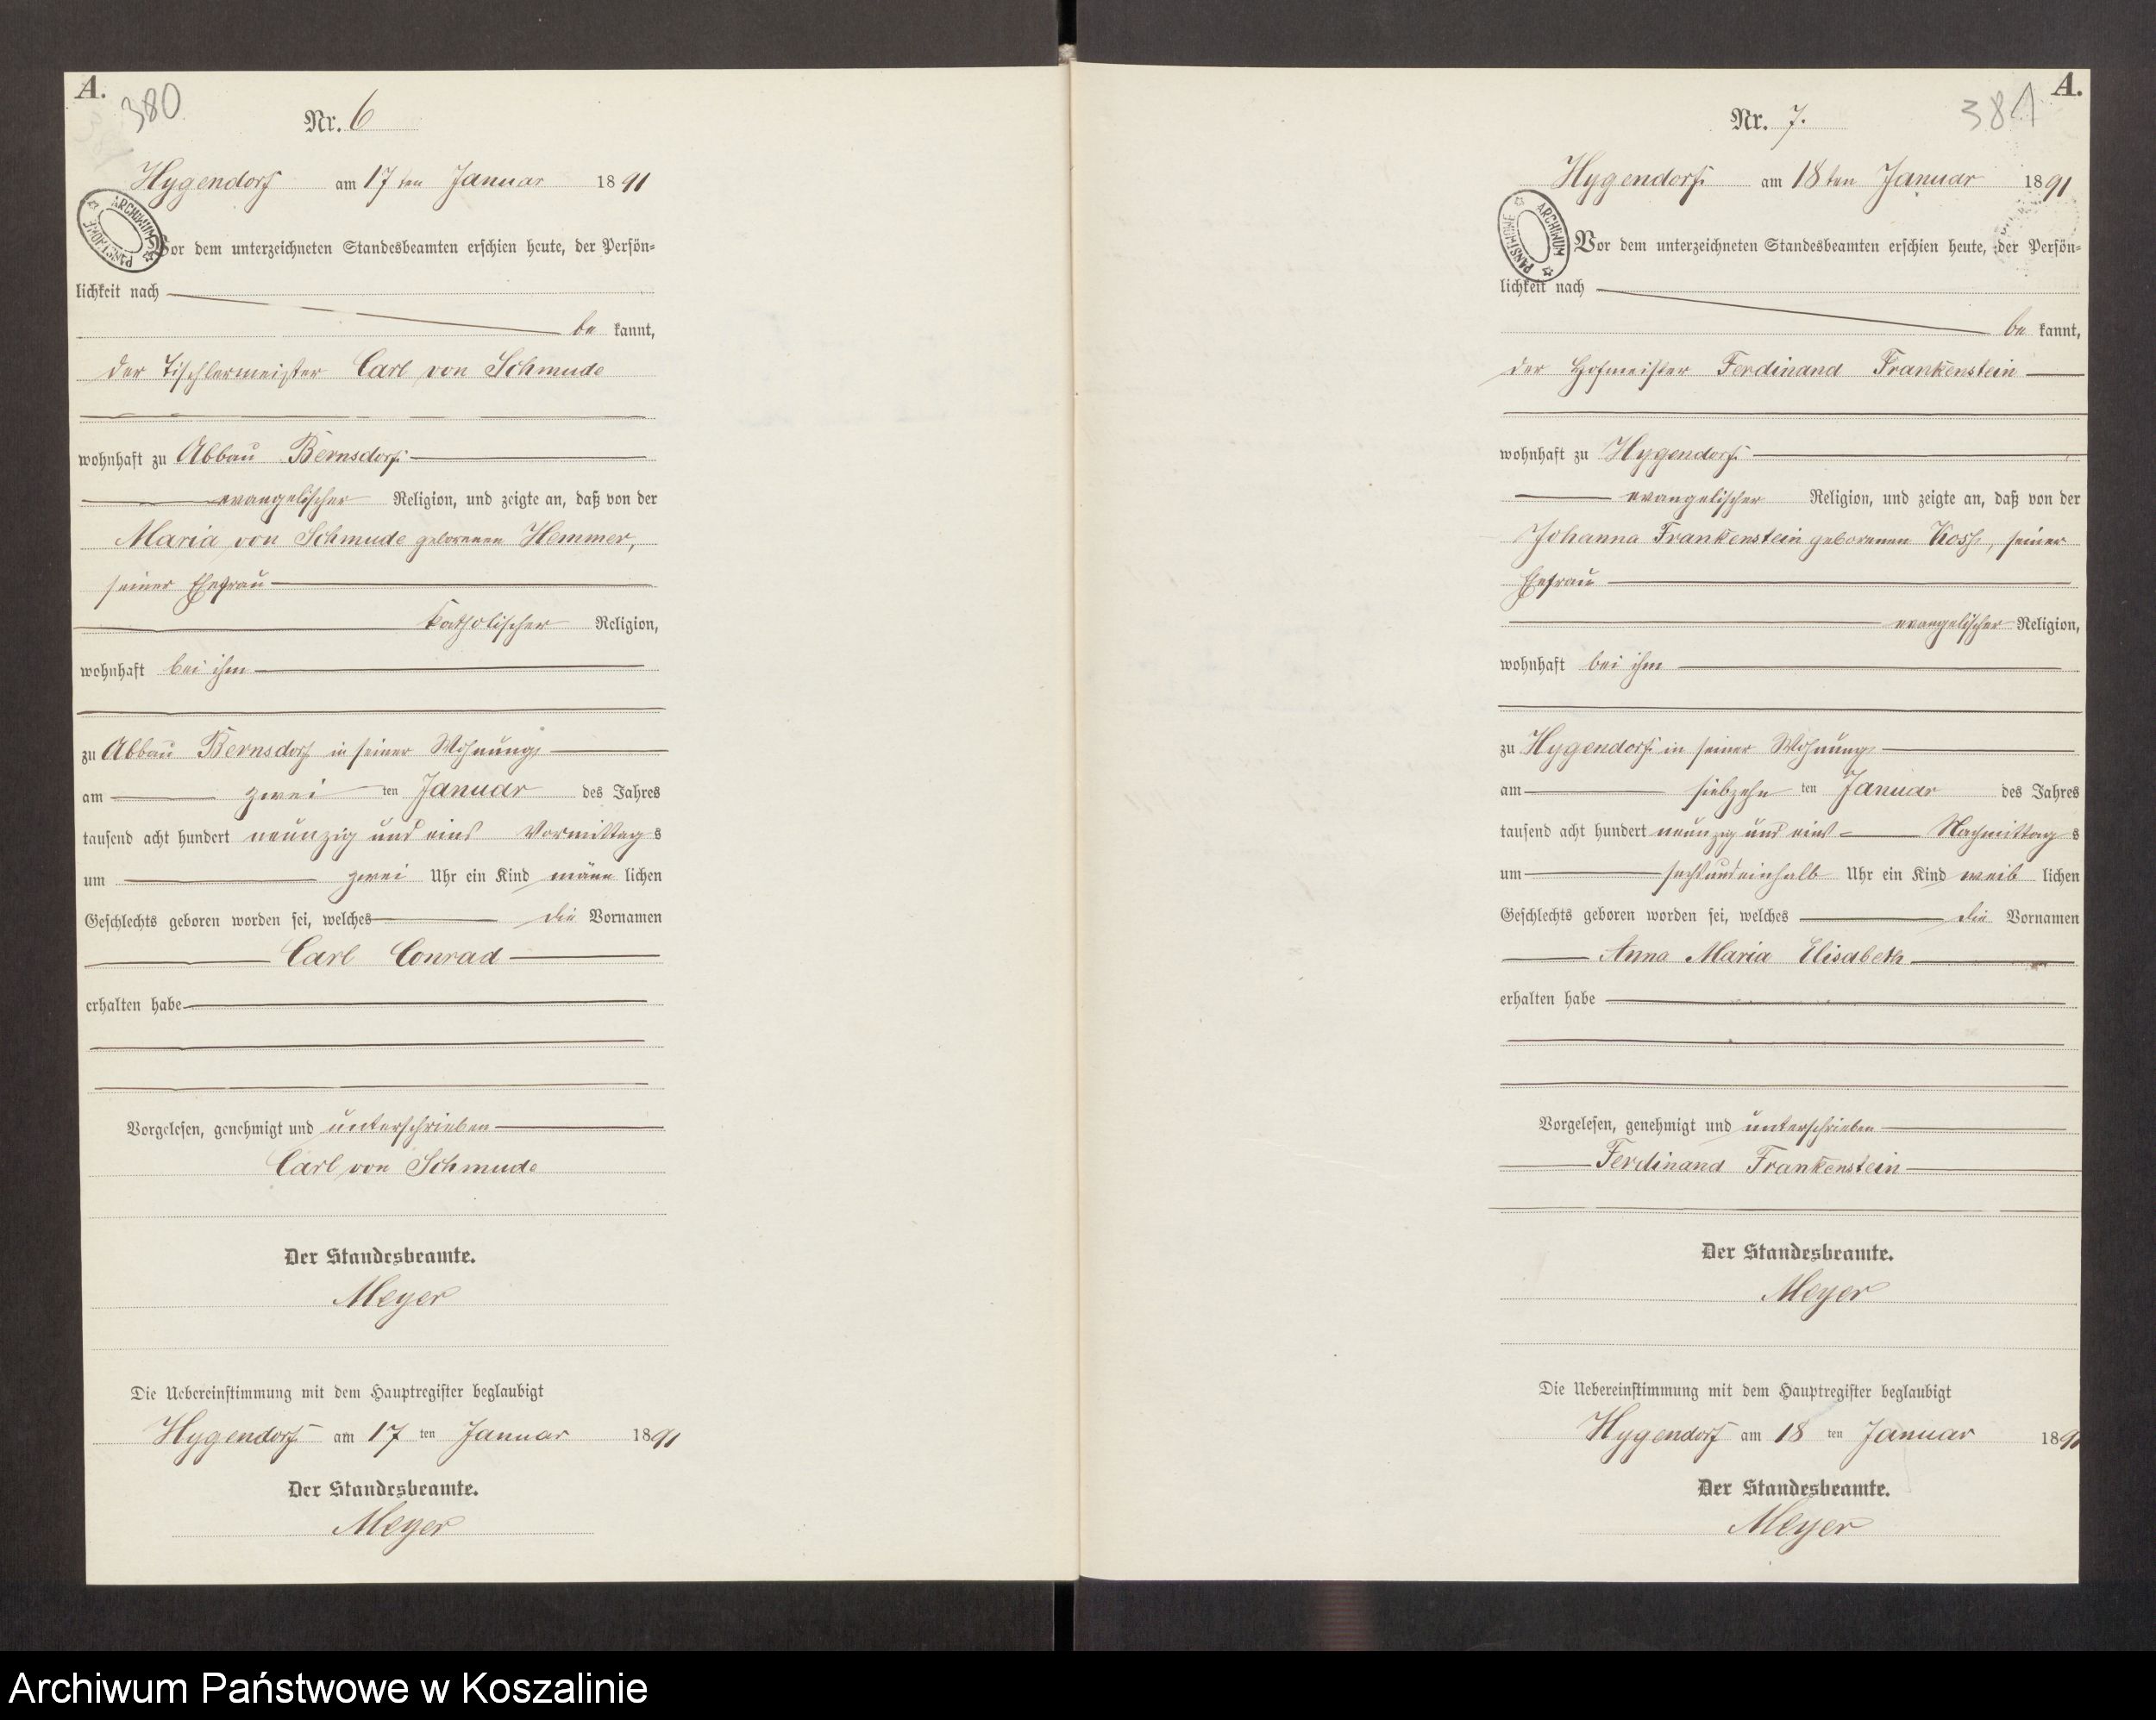 A.
380
Nr. 6
Hygendorf am 17ten Januar 1891
ARCHIWUM PAŃSTWOWE
Vor dem unterzeichneten Standesbeamten erschien heute, der Persön=
lichkeit nach
be kannt,
der Tischlermeister Carl von Schmude
wohnhaft zu Abbau Bernsdorf
evangelischer Religion, und zeigte an, daß von der
Maria von Schmude geborenen Hemmer,
seiner Ehefrau
katholischer Religion,
wohnhaft bei ihm
zu Abbau Bernsdorf in seiner Wohnung
am zwei ten Januar des Jahres
tausend acht hundert neunzig und eins Vormittag s
um zwei Uhr ein Kind männ lichen
Geschlechts geboren worden sei, welches die Vornamen
Carl Conrad
erhalten habe
Vorgelesen, genehmigt und unterschrieben
Carl von Schmude
Der Standesbeamte.
Meyer
Die Uebereinstimmung mit dem Hauptregister beglaubigt
Hygendorf am 17 ten Januar 1891
Der Standesbeamte.
Meyer
A.
381
Nr. 7.
Hygendorf am 18ten Januar 1891
ARCHIWUM PAŃSTWOWE
Vor dem unterzeichneten Standesbeamten erschien heute, der Persön=
lichkeit nach
be kannt,
der Hofmeister Ferdinand Frankenstein
wohnhaft zu Hygendorf
evangelischer Religion, und zeigte an, daß von der
Johanna Frankenstein geborenen Koss, seiner
Ehefrau
evangelischer Religion,
wohnhaft bei ihm
zu Hygendorf in seiner Wohnung
am siebzehn ten Januar des Jahres
tausend acht hundert neunzig und eins Nachmittag s
um sechsundeinhalb Uhr ein Kind weib lichen
Geschlechts geboren worden sei, welches die Vornamen
Anna Maria Elisabeth
erhalten habe
Vorgelesen, genehmigt und unterschrieben
Ferdinand Frankenstein
Der Standesbeamte.
Meyer
Die Uebereinstimmung mit dem Hauptregister beglaubigt
Hygendorf am 18 ten Januar 1891
Der Standesbeamte.
Meyer
Archiwum Państwowe w Koszalinie